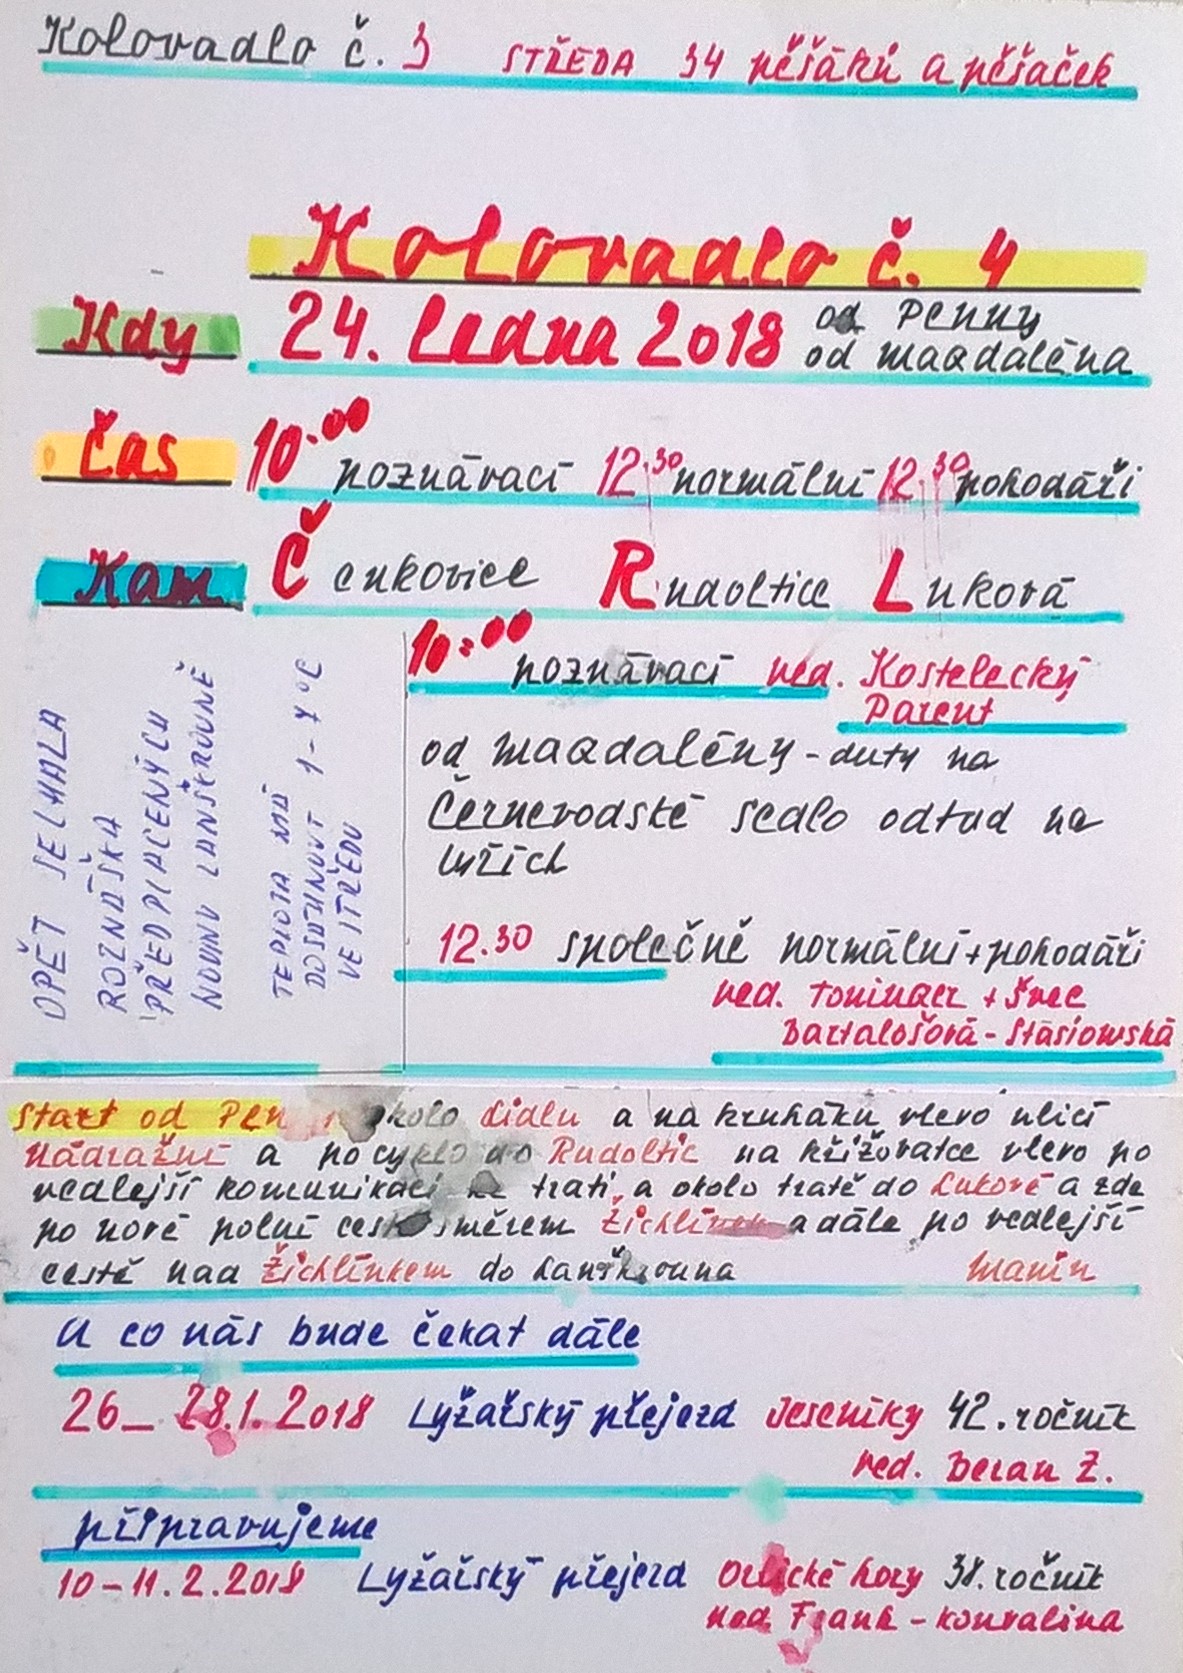 Kolovadlo č. 3 STŘEDA 34 pěšáků a pěšaček
Kolovadlo č. 4
Kdy 24. ledna 2018 od Penny
od Magdaléna
Čas 10.00 poznávací 12.30 normální 12.30 pohodáři
Kam Čenkovice Rudoltice Luková
10.00 poznávací ved. Kostelecký
Parent
od Magdalény - auty na
Černovodské sedlo odtud na
lyžích
12.30 společně normální + pohodáři
ved. Toninger + Švec
Bartalošová - Stasiowská
OPĚT SELHALA
ROZNÁŠKA
PŘEDPLACENÝCH
NOVIN V LANŠKROUNĚ
TEPLOTA MÁ
DOSÁHNOUT 1-7°C
VE STŘEDU
Start od Penny okolo Lidlu a na kruháku vlevo ulicí
Nádražní a po cyklo do Rudoltic na křižovatce vlevo po
vedlejší komunikaci k trati, a okolo tratě do Lukové a zde
po nové polní cestě směrem Žichlínek a dále po vedlejší
cestě nad Žichlínkem do Lanškrouna Manin
A co nás bude čekat dále
26 - 28.1.2018 Lyžařský přejezd Jeseníky 42. ročník
ved. Beran Z.
připravujeme
10-11.2.2018 Lyžařský přejezd Orlické hory 38. ročník
ved. Frank - Konvalina